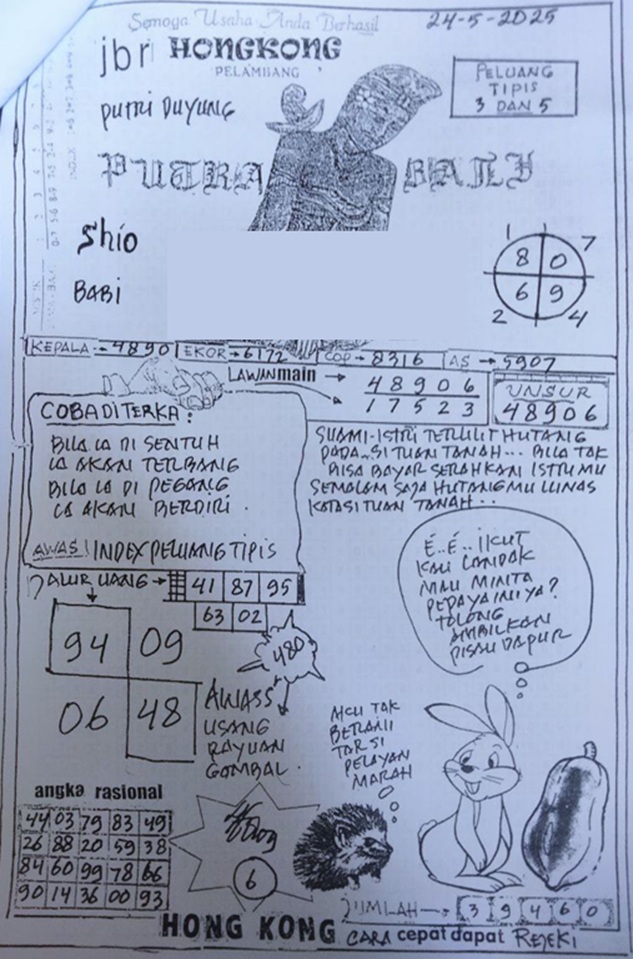 Semoga Usaha Anda Berhasil
24-5-2025
jbr HONGKONG
PELAMBANG
PELUANG
TIPIS
3 DAN 5
PUTRI DUYUNG
PUTRA BALI
Shio
BABI
1 7
8 0
6 9
2 4
KEPALA → 4890 EKOR → 6172 COP → 8316 AS → 5907
LAWAN main → 48906
17523
UNSUR
48906
COBA DITERKA :
BILA IA DI SENTUH
IA AKAN TERBANG
BILA IA DI PEGANG
IA AKAN BERDIRI .
AWAS! INDEX PELUANG TIPIS
SUAMI-ISTRI TERLILIT HUTANG
PADA..SI TUAN TANAH... BILA TAK
BISA BAYAR SERAHKAN ISTRIMU
SEMALAM SAJA HUTANGMU LUNAS
KATA SI TUAN TANAH..
JALUR UANG → 41 87 95
63 02
94 09
06 48
480
AWASS
USANG
RAYUAN
GOMBAL .
É..É.. IKUT
KAU LANDAK
MAU MINTA
PEPAYA INI YA?
TOLONG
AMBILKAN
PISAU DAPUR
AKU TAK
BERANI
TAR SI
PELAYAN
MARAH
angka rasional
44 03 79 83 49
26 88 20 59 38
84 60 99 78 66
90 14 36 00 93
6
JUMLAH → 3 9 4 6 0
HONG KONG CARA cepat dapat REJEKI